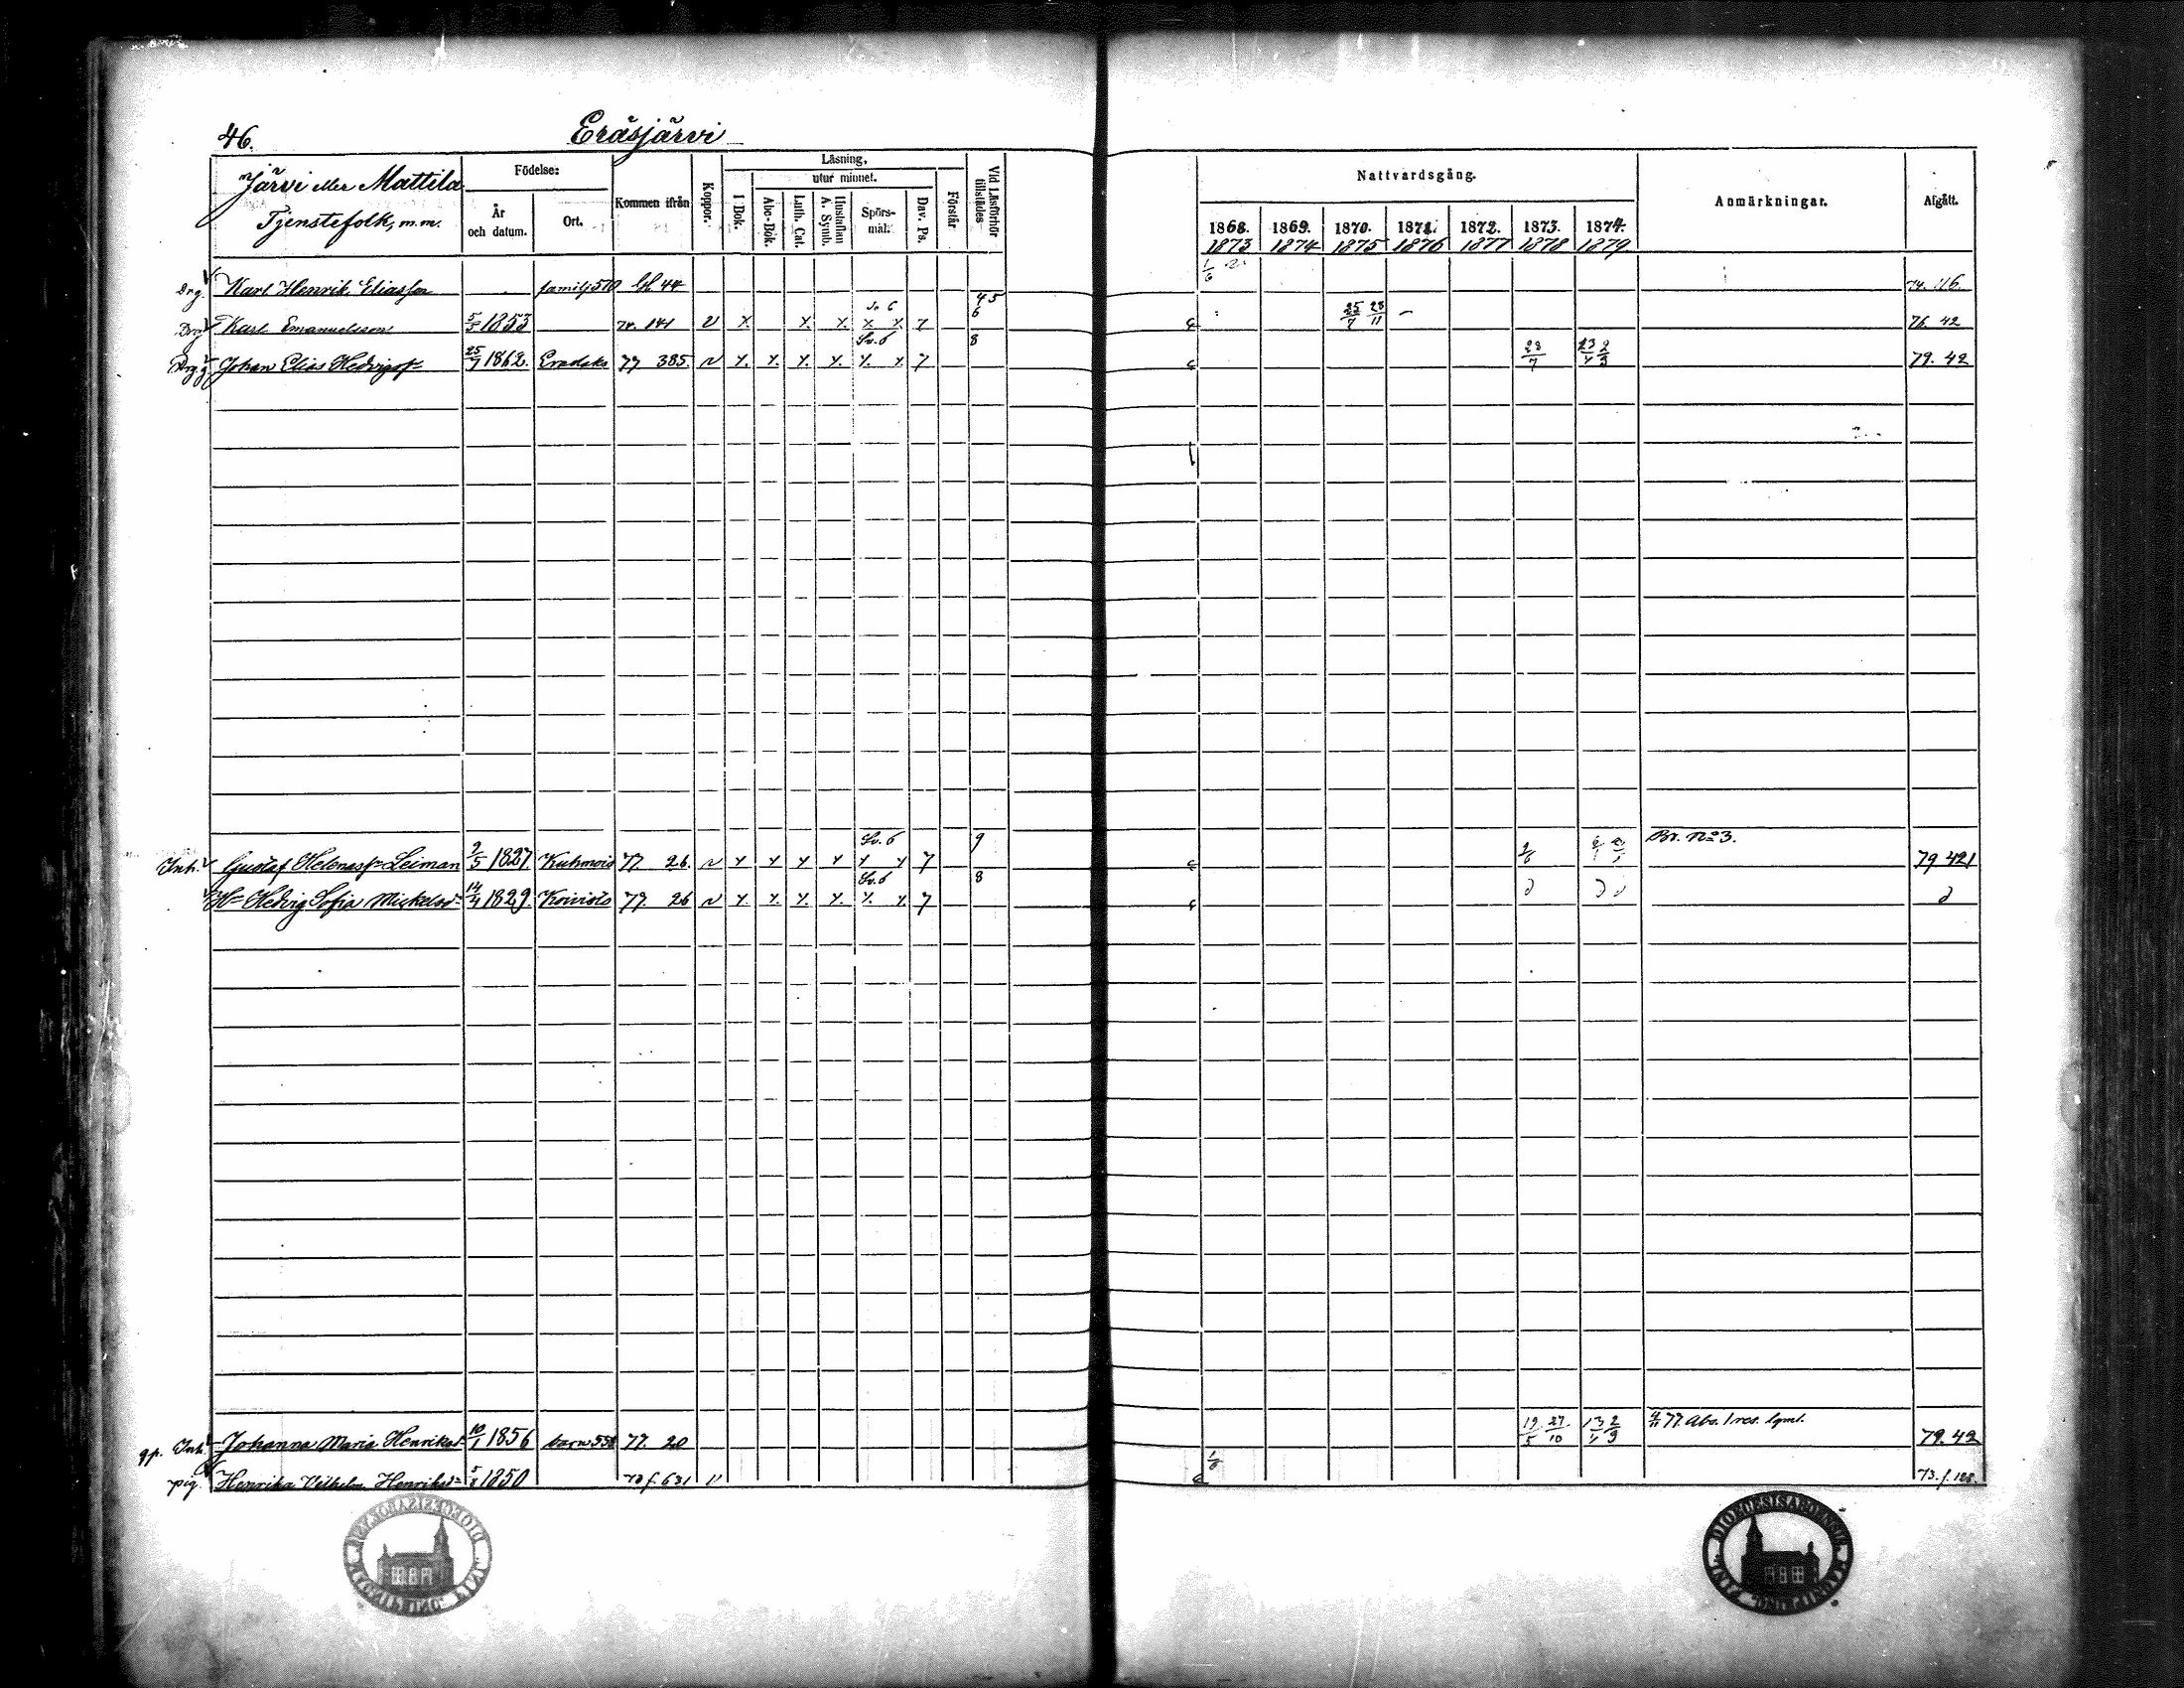 46.
Eräsjärvi
Järvi eller Mattila
Tjenstefolk, m.m.
Födelse:
År och datum.
Ort.
Kommen ifrån
Koppor.
Läsning,
I Bok.
utur minnet.
Abc-Bok.
Luth. Cat.
Hustaflan A. Symb.
Spörs-mål.
Dav. Ps.
Förstår
Vid Läsförhör tillstädes
Nattvardsgång.
1868. 1869. 1870. 1871. 1872. 1873. 1874.
1873 1874 1875 1876 1877 1878 1879
Anmärkningar.
Afgått.
Drg. Karl Henrik Eliasson familj 510 bl 44 1/6 74. 116.
Drg Karl Emanuelsson 5/5 1853 74. 141 v x x x x x 7 4 5 6 25/7 28/11 — 76. 42
Drg Johan Elias Hedvigsf 25/7 1862. 77 385. v x. x. x. x. Sv. 6 x. x 7 8 28/7 23/4 2/3 79. 42
Inh. Gustaf Helenasf Leiman 2/5 1827 Kuhmois 77. 26. v x x x x Sv. 6 x x 7 9 2/6 Br. No 3. 79 421
H Hedvig Sofia Mickelsd 14/4 1829. Koivisto 77. 26 v x. x. x. x. Sv. 6 x. x. 7 8 d d d d
gp. Inh. Johanna Maria Henriksd 10/1 1856 barn 558 77. 20 19/5 27/10 13/4 2/9 4/11 77. Abs. 79. 42
pig. Henrika Vilhelm. Henriksd 5/8 1850 f. 631 v 1/6 73. f. 128.
DIOECESIS ABOENSIS